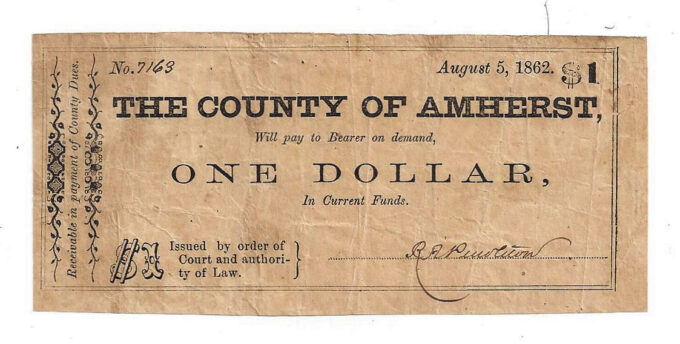 No. 7163
August 5, 1862. $1
THE COUNTY OF AMHERST,
Will pay to Bearer on demand,
ONE DOLLAR,
In Current Funds.
$1
Issued by order of
Court and authori-
ty of Law.
Receivable in payment of County Dues.